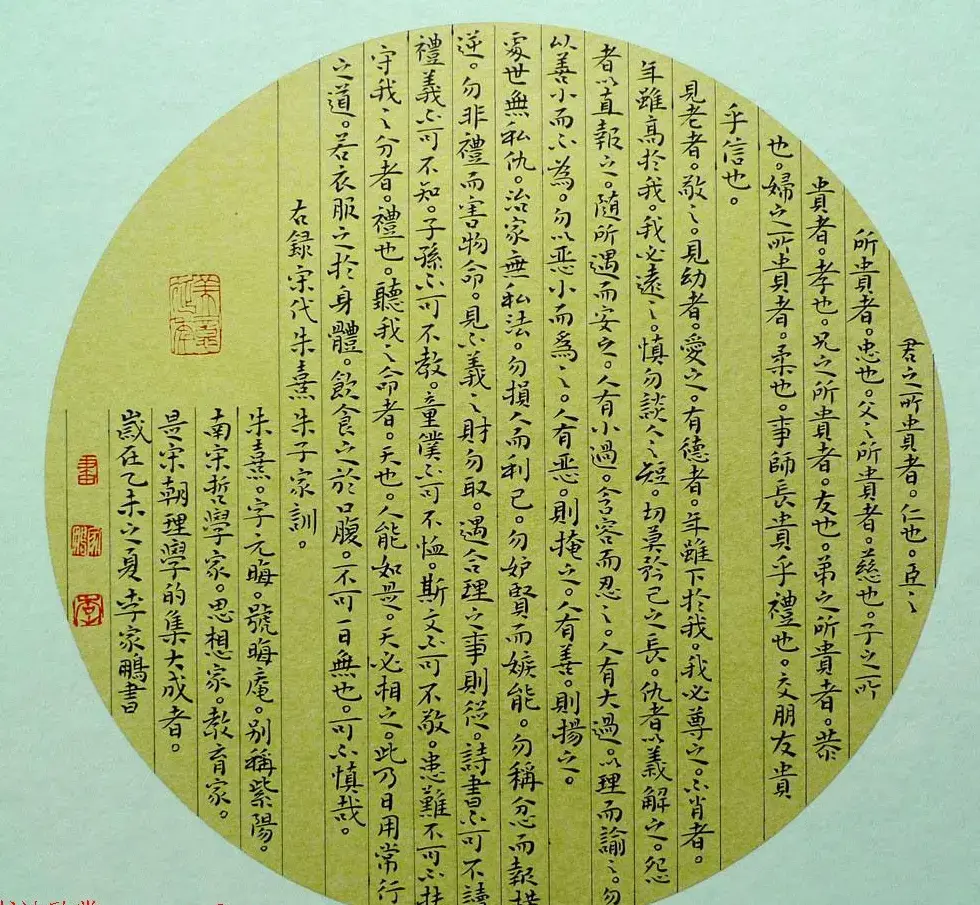 君之所貴者。仁也。臣之
所貴者。忠也。父之所貴者。慈也。子之所
貴者。孝也。兄之所貴者。友也。弟之所貴者。恭
也。婦之所貴者。柔也。事師長貴乎禮也。交朋友貴
乎信也。
見老者。敬之。見幼者。愛之。有德者。年雖下於我。我必尊之。不肖者。
年雖高於我。我必遠之。慎勿談人之短。切莫矜己之長。仇者以義解之。怨
者以直報之。隨所遇而安之。人有小過。含容而忍之。人有大過。以理而諭之。勿
以善小而不為。勿以惡小而為之。人有惡。則掩之。人有善。則揚之。
處世無私仇。治家無私法。勿損人而利己。勿妒賢而嫉能。勿稱忿而報橫
逆。勿非禮而害物命。見不義之財勿取。遇合理之事則從。詩書不可不讀
禮義不可不知。子孫不可不教。童僕不可不恤。斯文不可不敬。患難不可不扶
守我之分者。禮也。聽我之命者。天也。人能如是。天必相之。此乃日用常行
之道。若衣服之於身體。飲食之於口腹。不可一日無也。可不慎哉。
右録宋代朱熹朱子家訓。
朱熹。字元晦。號晦庵。別稱紫陽。
南宋哲學家。思想家。教育家。
是宋朝理學的集大成者。
歲在乙未之夏李家鵬書
美意延年
李